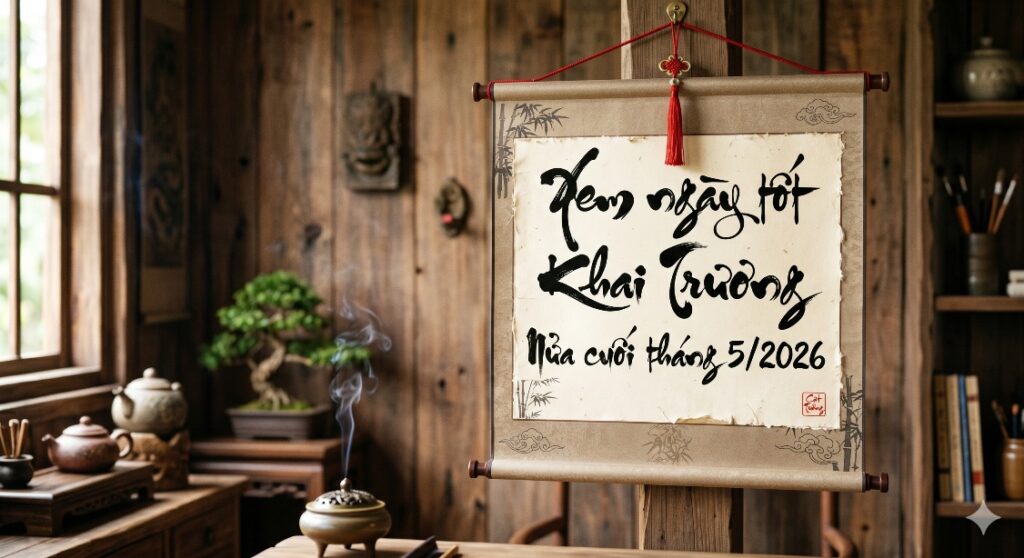 Xem ngày tốt
Khai Trương
Nửa cuối tháng 5/2026
Cát
Tường